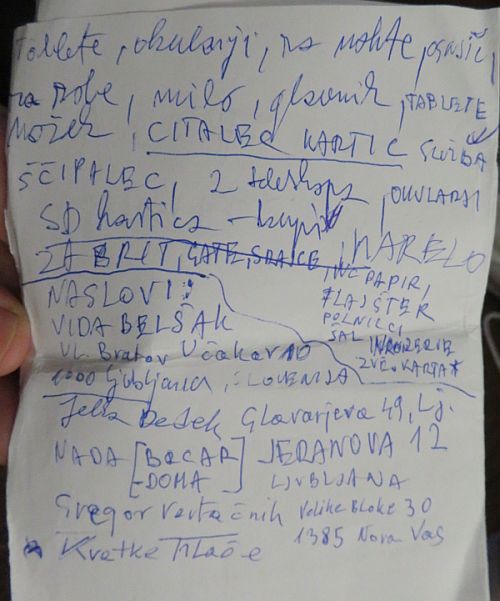 Tablete, okularji, za nohte, 
za zobe, milo, glavnik, TABLETE
Možek, ČITALEC KARTIC SLUŽBA
ŠČIPALEC, 2 OKULARJI
SD kartica - kupi
ZA BRIT, GATE, SRAJCE, MARELO
WC PAPIR,
FLAJŠTER
POLNILCI
ŠAL
KARTA
NASLOVI:
VIDA BELŠAK
Ul. Bratov Učakar 10
1000 Ljubljana, SLOVENIJA
Glavarjeva 49, Lj.
NADA [BOCAR JERANOVA 12
-DOMA] LJUBLJANA
Gregor Velike Bloke 30
1385 Nova Vas
Kratke hlače